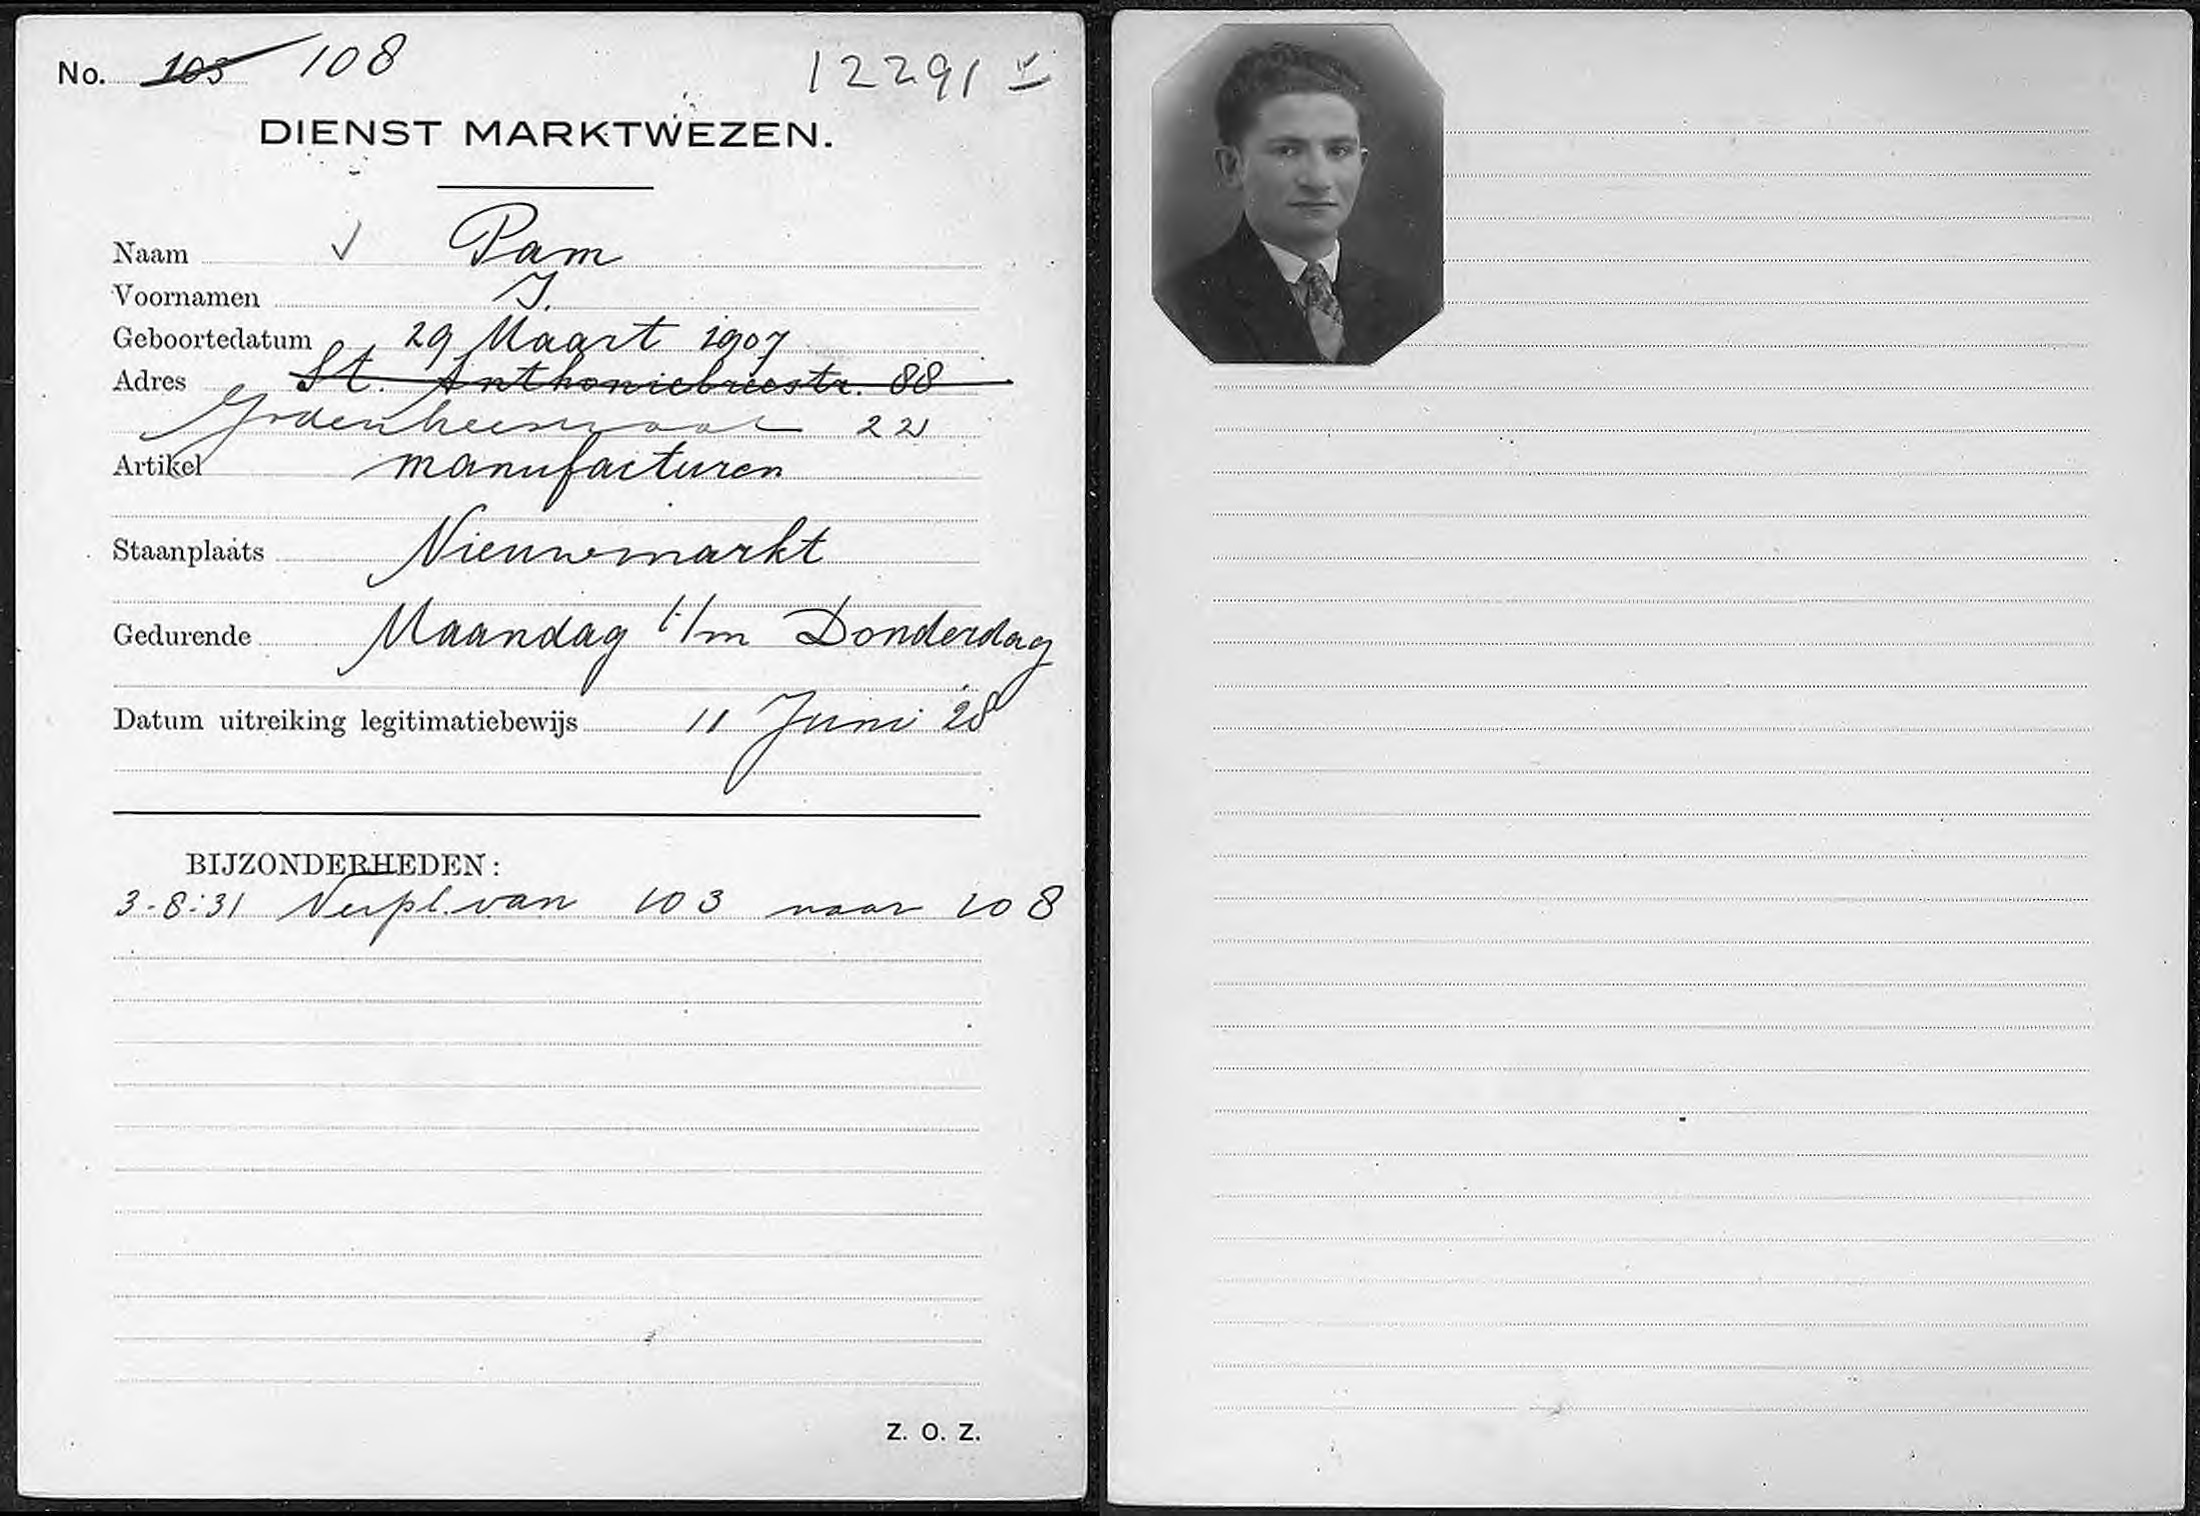 No. 103 108 12291
DIENST MARKTWEZEN.
Naam Pam
Voornamen J.
Geboortedatum 29 Maart 1907
Adres St. Anthoniebreestr. 88
22
Artikel manufacturen
Staanplaats Nieuwmarkt
Gedurende Maandag t/m Donderdag
Datum uitreiking legitimatiebewijs 11 Juni 28
BIJZONDERHEDEN:
3-8-31 Verpl. van 103 naar 108
Z. O. Z.